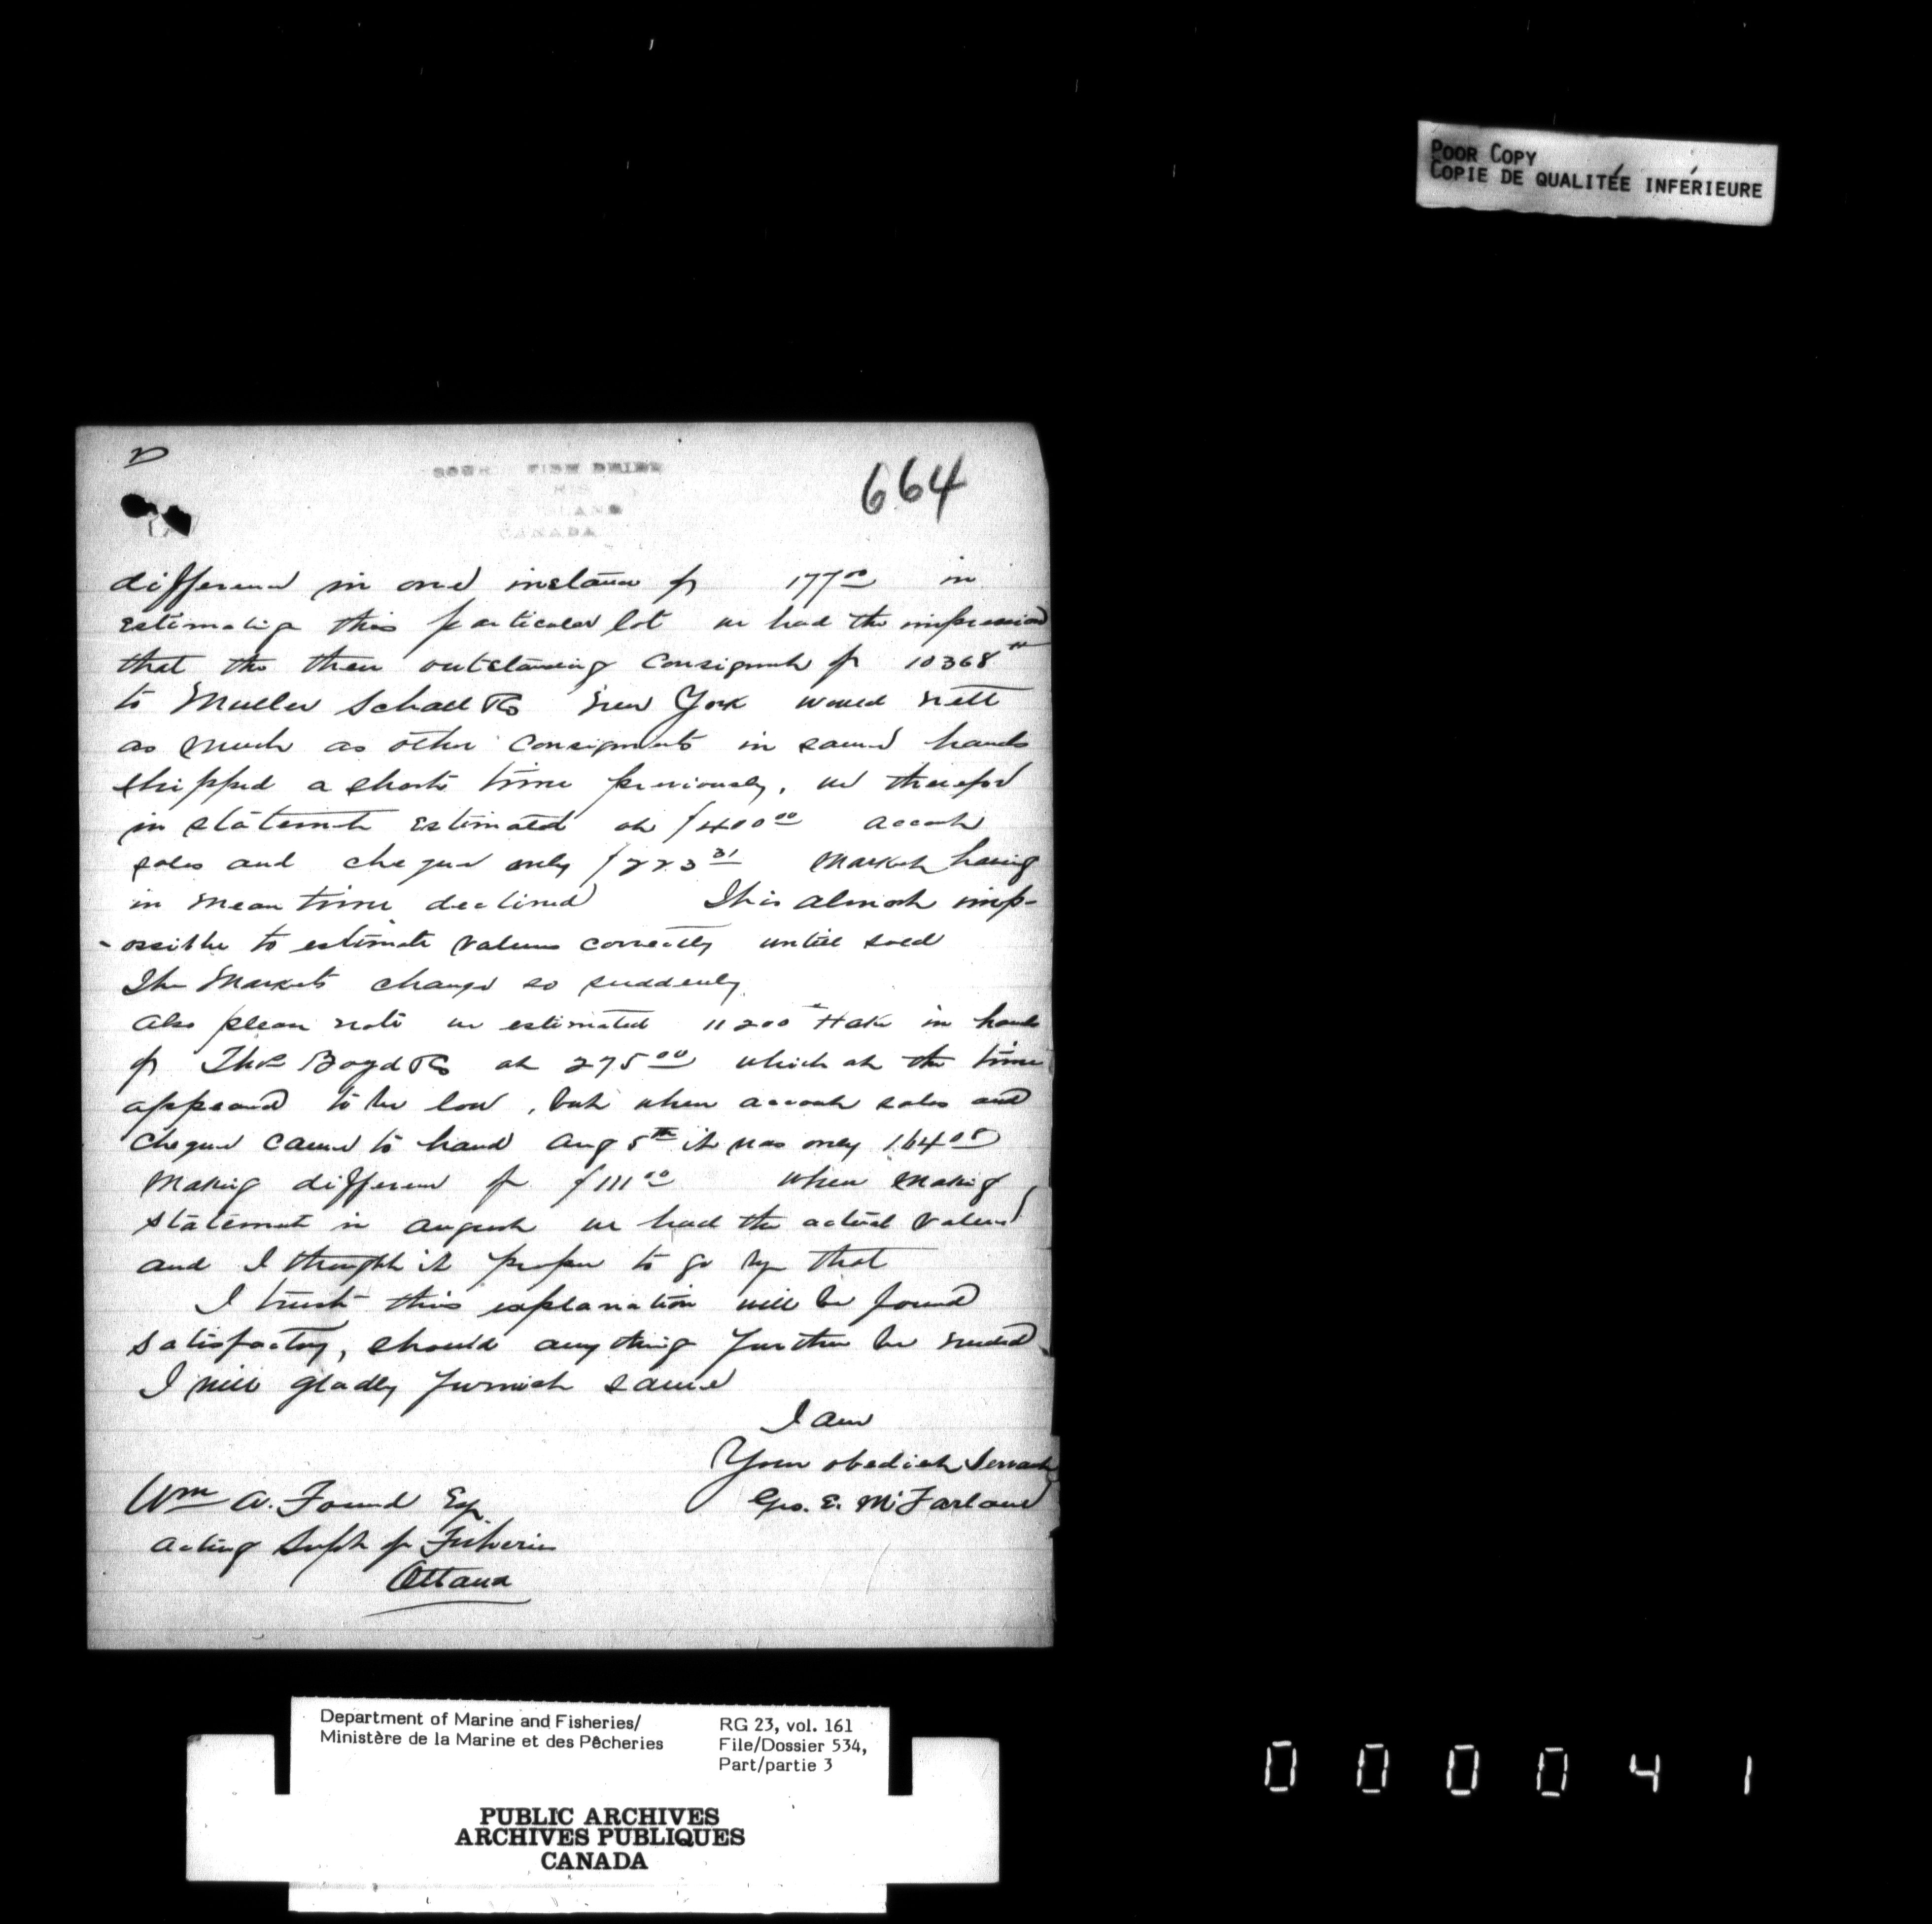 POOR COPY
COPIE DE QUALITÉE INFÉRIEURE
2
664
FISH DRIER
CANADA
difference in one instance of 177.00 in
estimating this particular lot we had the impression
that the then outstanding consignment of 10368 #
to Muller Schall & Co New York would nett
as much as other consignments in same hands
shipped a short time previously, we therefore
in statement estimated at $400.00 account
sales and cheque only $223.31 market having
in mean time declined It is almost imp-
-ossible to estimate values correctly untill sold
The markets change so suddenly
Also please note we estimated 11200 # Hake in hands
of Thos Boyd & Co at 275.00 which at the time
appeared to be low, but when account sales and
cheque came to hand Aug 5th it was only 164.00
making difference of $111.00 when making
statement in August we had the actual values
and I thought it proper to go by that
I trust this explanation will be found
satisfactory, should any thing further be needed
I will gladly furnish same
I am
Your obedient Servant
Geo. E. McFarlane
Wm A. Found Esq
Acting Supt of Fisheries
Ottawa
Department of Marine and Fisheries/
Ministère de la Marine et des Pêcheries
RG 23, vol. 161
File/Dossier 534,
Part/partie 3
PUBLIC ARCHIVES
ARCHIVES PUBLIQUES
CANADA
000041